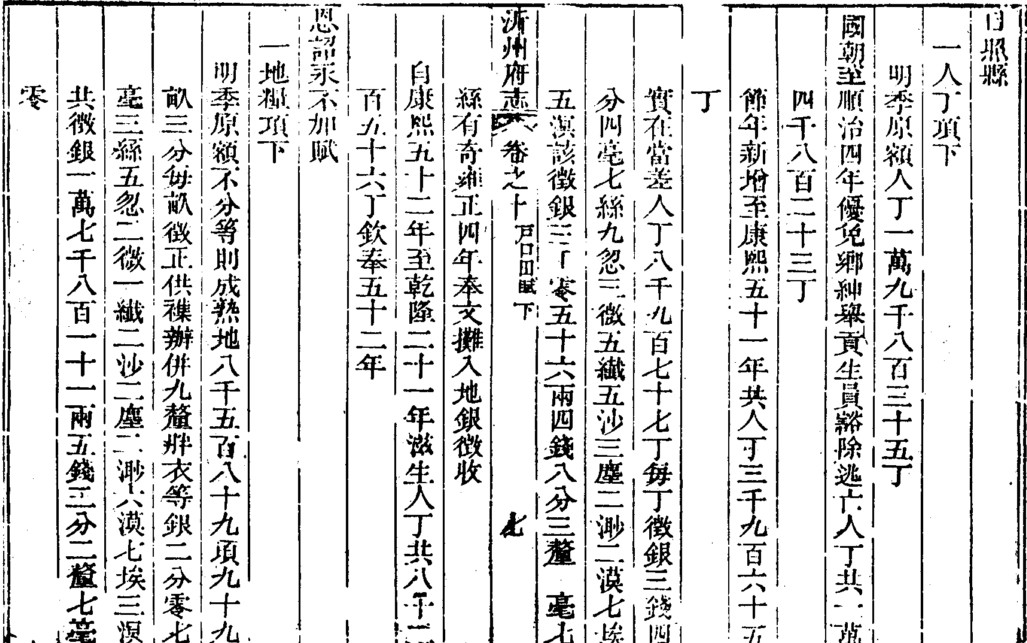 日照縣
一人丁項下
明季原額人丁一萬九千八百三十五丁
國朝至順治四年優免鄉紳舉貢生員豁除逃亡人丁共一萬
四千八百二十三丁
節年新增至康熙五十一年共人丁三千九百六十五
丁
實在當差人丁八千九百七十七丁每丁徵銀三錢四
分四毫七絲九忽三微五纖五沙三塵二渺二漠七埃
五溟該徵銀三千零五十六兩四錢八分三釐 毫七
沂州府志 卷之十 戶口田賦下 七
絲有奇雍正四年奉文攤入地銀徵收
自康熙五十二年至乾隆二十一年滋生人丁共八千二
百五十六丁欽奉五十二年
恩詔永不加賦
一地糧項下
明季原額不分等則成熟地八千五百八十九項九十九
畝三分每畝徵正供襍辦併九釐胖衣等銀二分零七
毫三絲五忽二微一纖二沙二塵二渺六漠七埃三溟
共徵銀一萬七千八百一十一兩五錢三分二釐七毫
零